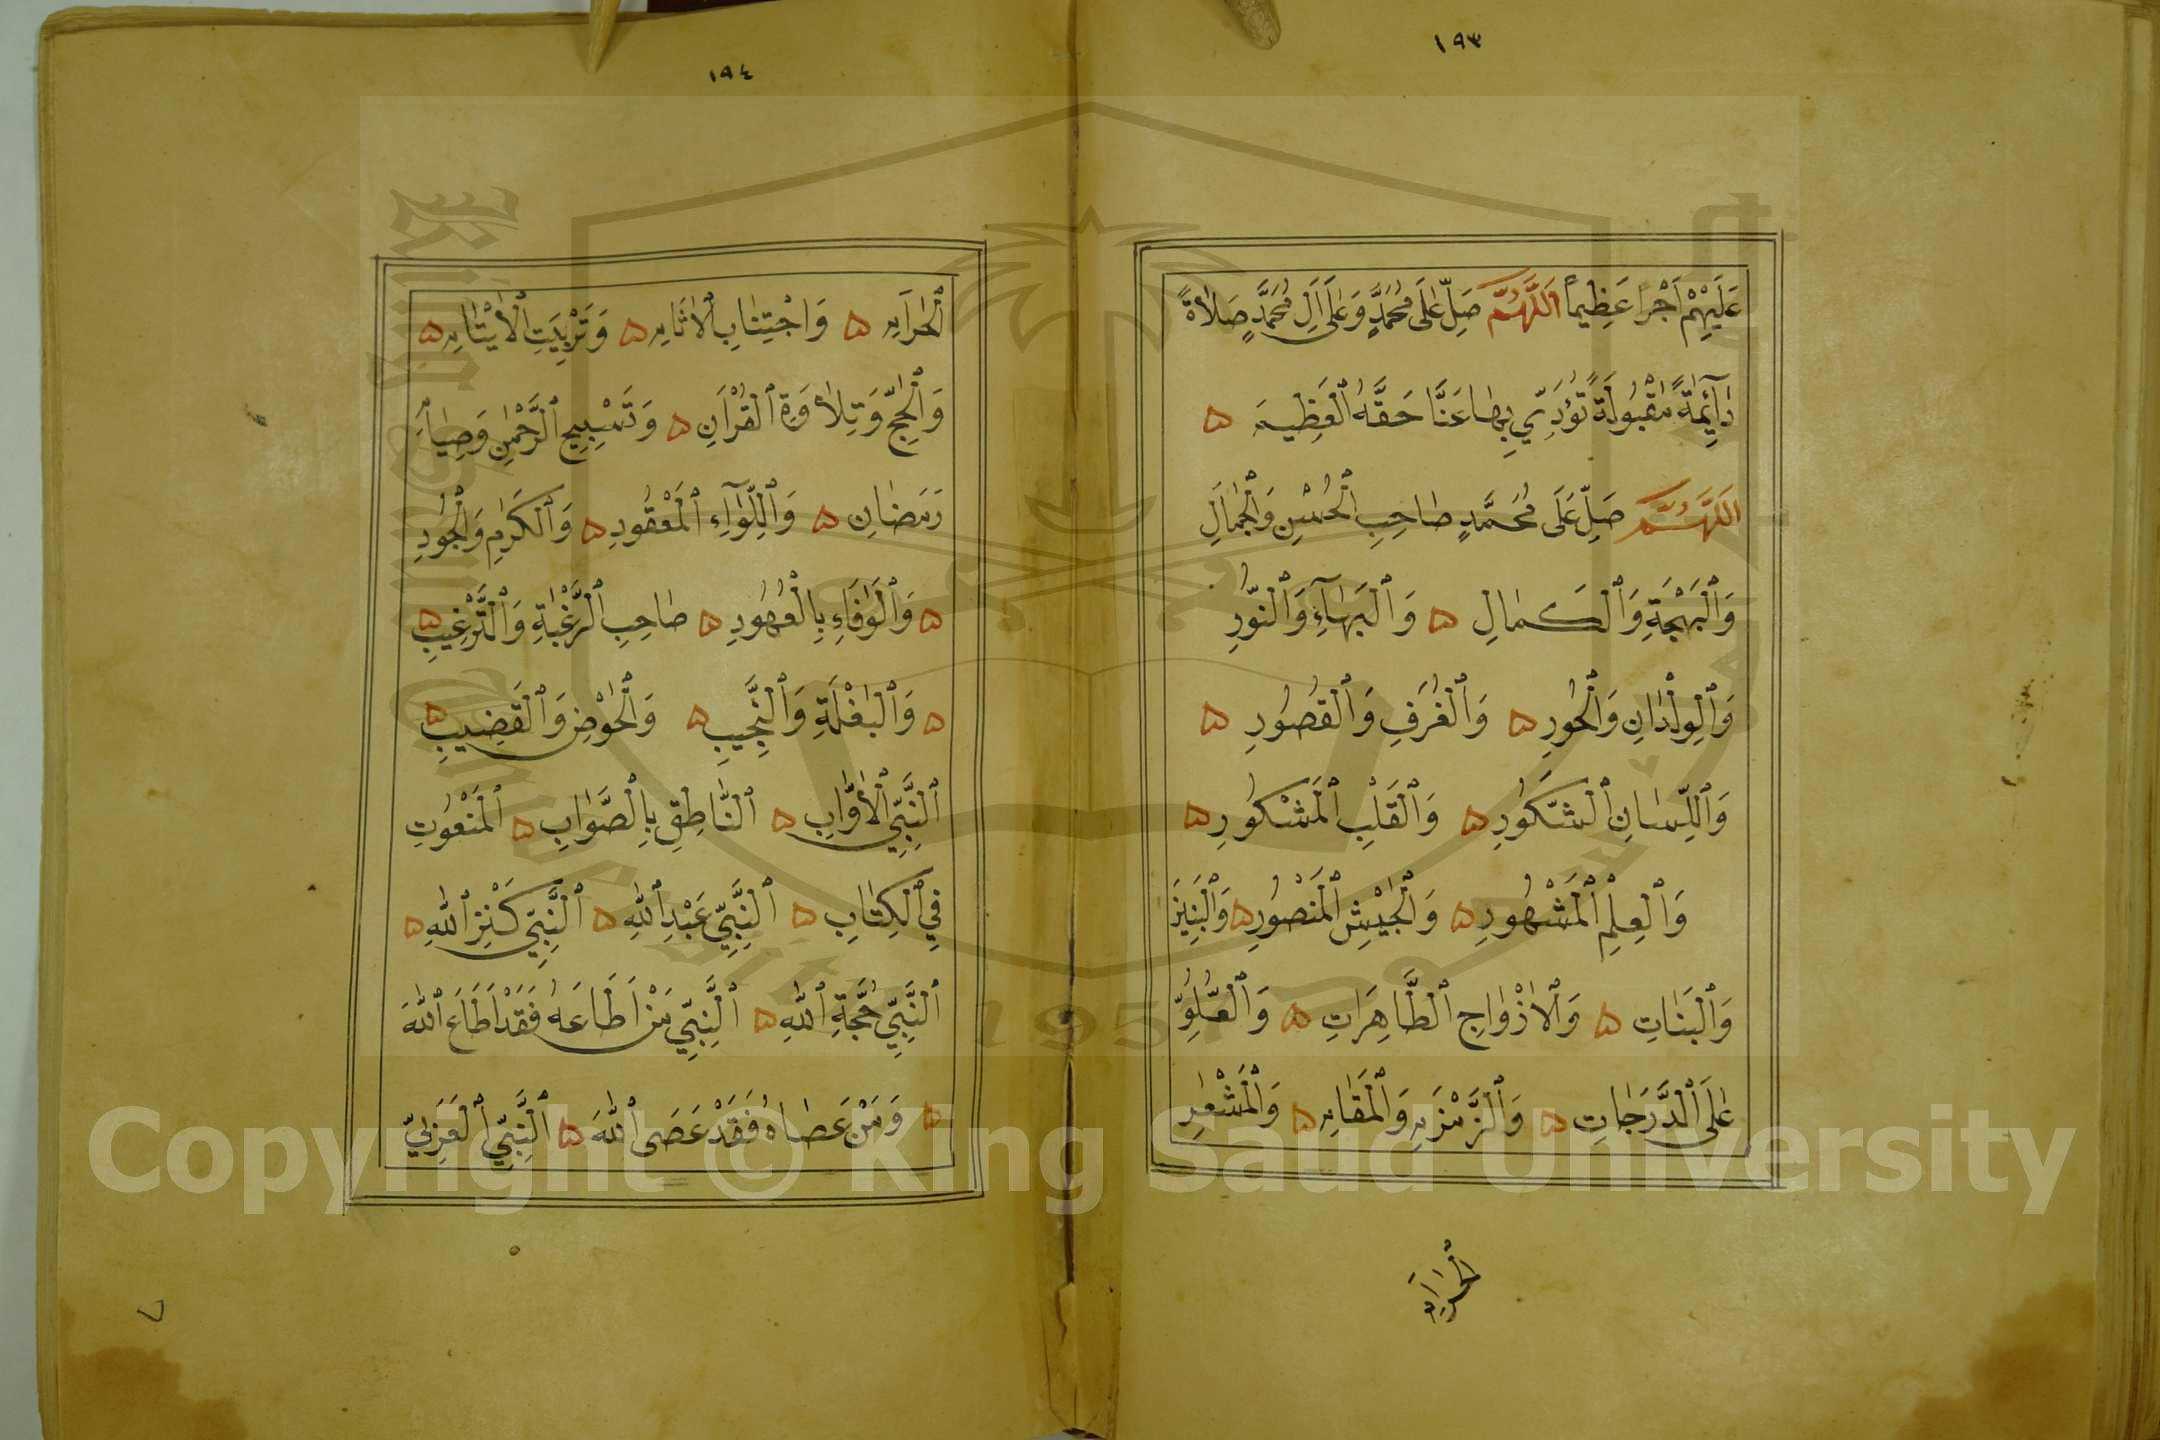 ١٩٣
عَلَيْهِمْ اَجْرًا عَظِيمًا اَللّٰهُمَّ صَلِّ عَلَى مُحَمَّدٍ وَعَلَى اَلِ مُحَمَّدٍ صَلَاةً
دَآئِمَةً مَقْبُولَةً تُؤَدِّي بِهَا عَنَّا حَقَّهُ الْعَظِيمَ ۵
اَللّٰهُمَّ صَلِّ عَلَى مُحَمَّدٍ صَاحِبِ الْحُسْنِ وَالْجَمَالِ
وَالْبَهْجَةِ وَالْكَمَالِ ۵ وَالْبَهَآءِ وَالنُّورِ
وَالْوِلْدَانِ وَالْحُورِ ۵ وَالْغُرَفِ وَالْقُصُورِ ۵
وَاللِّسَانِ الشَّكُورِ ۵ وَالْقَلْبِ الْمَشْكُورِ ۵
وَالْعِلْمِ الْمَشْهُورِ ۵ وَالْجَيْشِ الْمَنْصُورِ ۵ وَالْبَنِينَ
وَالْبَنَاتِ ۵ وَالْاَزْوَاجِ الطَّاهِرَاتِ ۵ وَالْعُلُوِّ
عَلَى الدَّرَجَاتِ ۵ وَالزَّمْزَمِ وَالْمَقَامِ ۵ وَالْمَشْعَرِ
الْحَرَامِ
١٩٤
الْحَرَامِ ۵ وَاجْتِنَابِ الْاٰثَامِ ۵ وَتَرْبِيَتِ الْاَيْتَامِ ۵
وَالْحَجِّ وَتِلَاوَةِ الْقُرْاَنِ ۵ وَتَسْبِيحِ الرَّحْمٰنِ وَصِيَامِ
رَمَضَانِ ۵ وَاللِّوَآءِ الْمَعْقُودِ ۵ وَالْكَرَمِ وَالْجُودِ
۵ وَالْوَفَاءِ بِالْعُهُودِ ۵ صَاحِبِ الرَّغْبَةِ وَالتَّرْغِيبِ ۵
۵ وَالْبَغْلَةِ وَالنَّجِيبِ ۵ وَالْحَوْضِ وَالْقَضِيبِ ۵
النَّبِيِّ الْاَوَّابِ ۵ النَّاطِقِ بِالصَّوَابِ ۵ الْمَنْعُوتِ
فِي الْكِتَابِ ۵ النَّبِيِّ عَبْدِ اللّٰهِ ۵ النَّبِيِّ كَنْزِ اللّٰهِ ۵
النَّبِيِّ حُجَّةِ اللّٰهِ ۵ النَّبِيِّ مَنْ اَطَاعَهُ فَقَدْ اَطَاعَ اللّٰهَ
۵ وَمَنْ عَصَاهُ فَقَدْ عَصَى اللّٰهَ ۵ النَّبِيِّ الْعَرَبِيِّ
٧
1957
Copyright © King Saud University